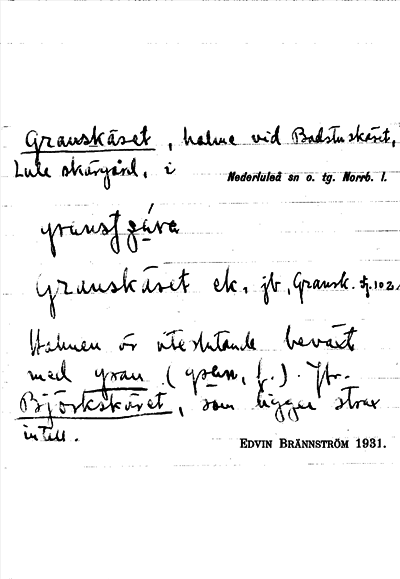 Granskäret, holme vid Badstuskäret,
Lule skärgård, i
Nederluleå sn o. tg. Norrb. l.
Granskäret ek., jb, Gransk. fj. 102.
Holmen är uteslutande beväxt
med gran (gran, f.). Jfr.
Björkskäret, som ligger strax
intill.
EDVIN BRÄNNSTRÖM 1931.